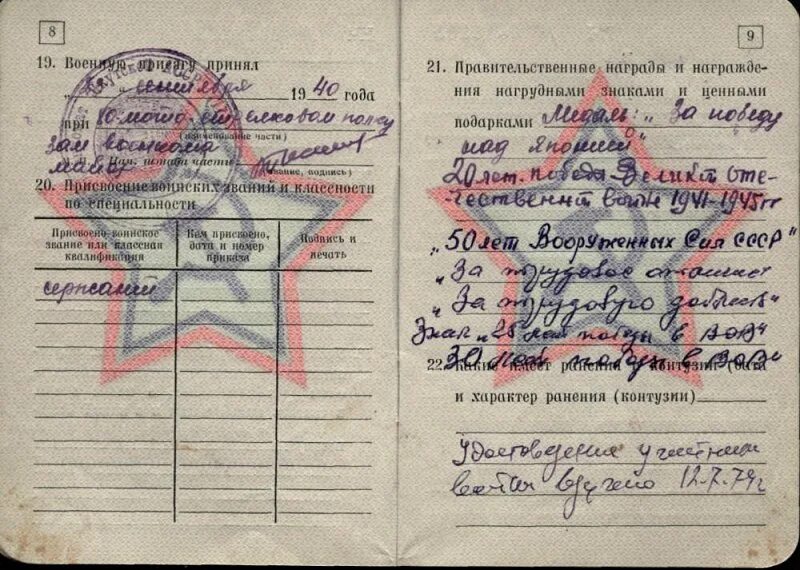 8
19. Военную присягу принял
„ „ сентября 1940 года
при 10 мото-стрелковом полку
(наименование части)
Зам военкома
майор Нач. штаба части
(звание, подпись)
20. Присвоение воинских званий и классности
по специальности
Присвоено воинское звание или классная квалификация
Кем присвоено, дата и номер приказа
Подпись и печать
сержант
9
21. Правительственные награды и награжде-
ния нагрудными знаками и ценными
подарками Медаль: „За победу
над Японией"
20 лет. победы Великой Оте-
чественной войны 1941-1945 гг
„50 лет Вооруженных Сил СССР"
„За трудовое отличие
„За трудовую доблесть"
Знак „25 лет победы в ВОВ"
30 лет победы в ВОВ"
22. Какие имеет ранения и контузии (дата
и характер ранения (контузии)
Удостоверение участника
войны вручено 12.7.79г